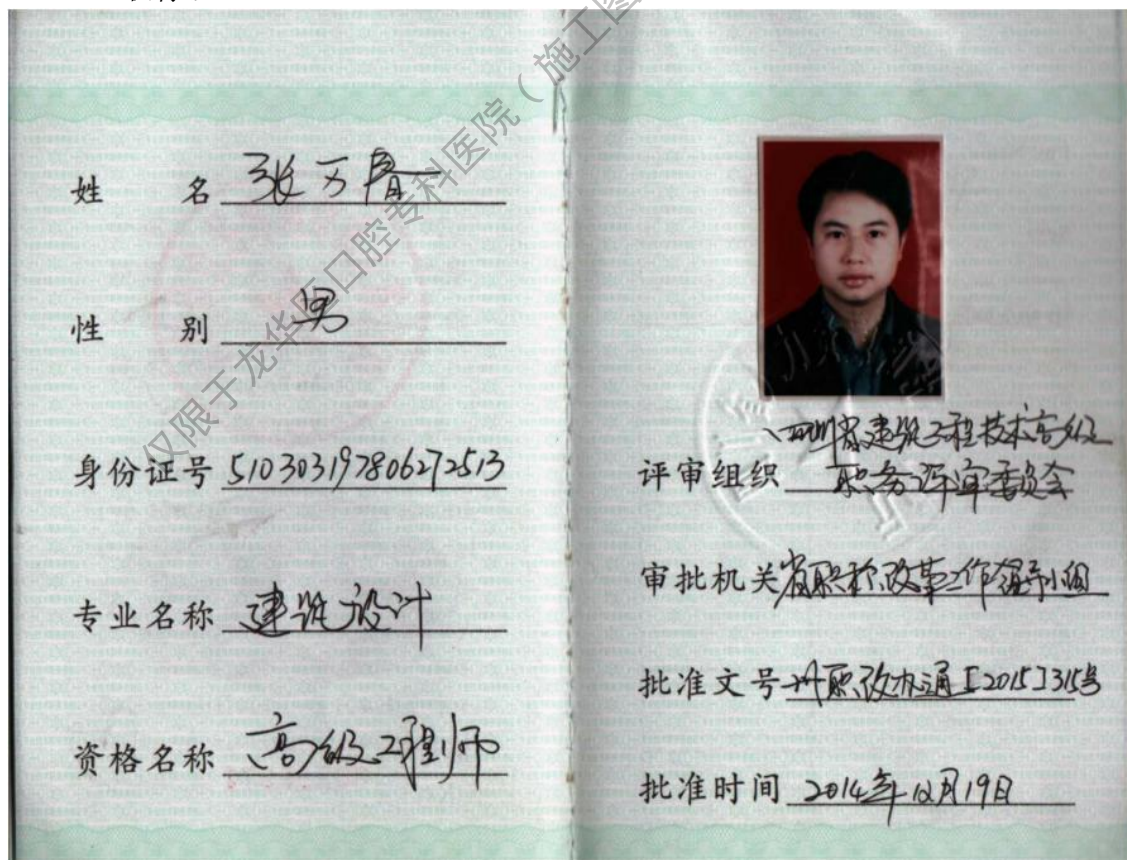 仅限于龙华区口腔专科医院（施工图
姓名 张万春
性别 男
身份证号 510303197806272513
专业名称 建筑设计
资格名称 高级工程师
四川省建筑工程技术高级
评审组织 职务评审委员会
审批机关 省职称改革工作领导小组
批准文号 川职改办通[2015]315号
批准时间 2014年12月19日